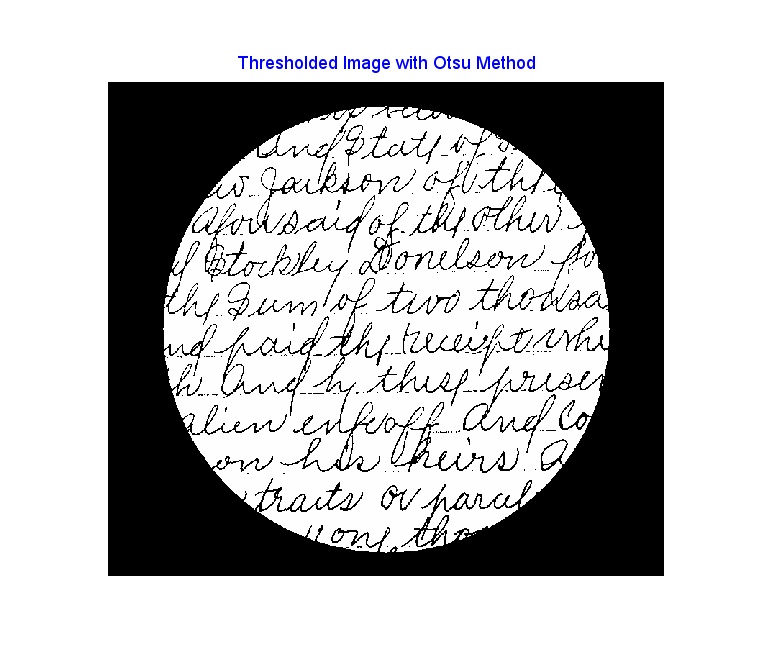 Thresholded Image with Otsu Method
And State of
Jackson of the
Aforesaid of the other
Stockley Donelson
the Sum of two thousa
nd paid the receipt whe
h And by these presen
alien enfeoff And Co
on his heirs A
tracts or parcel
one tho